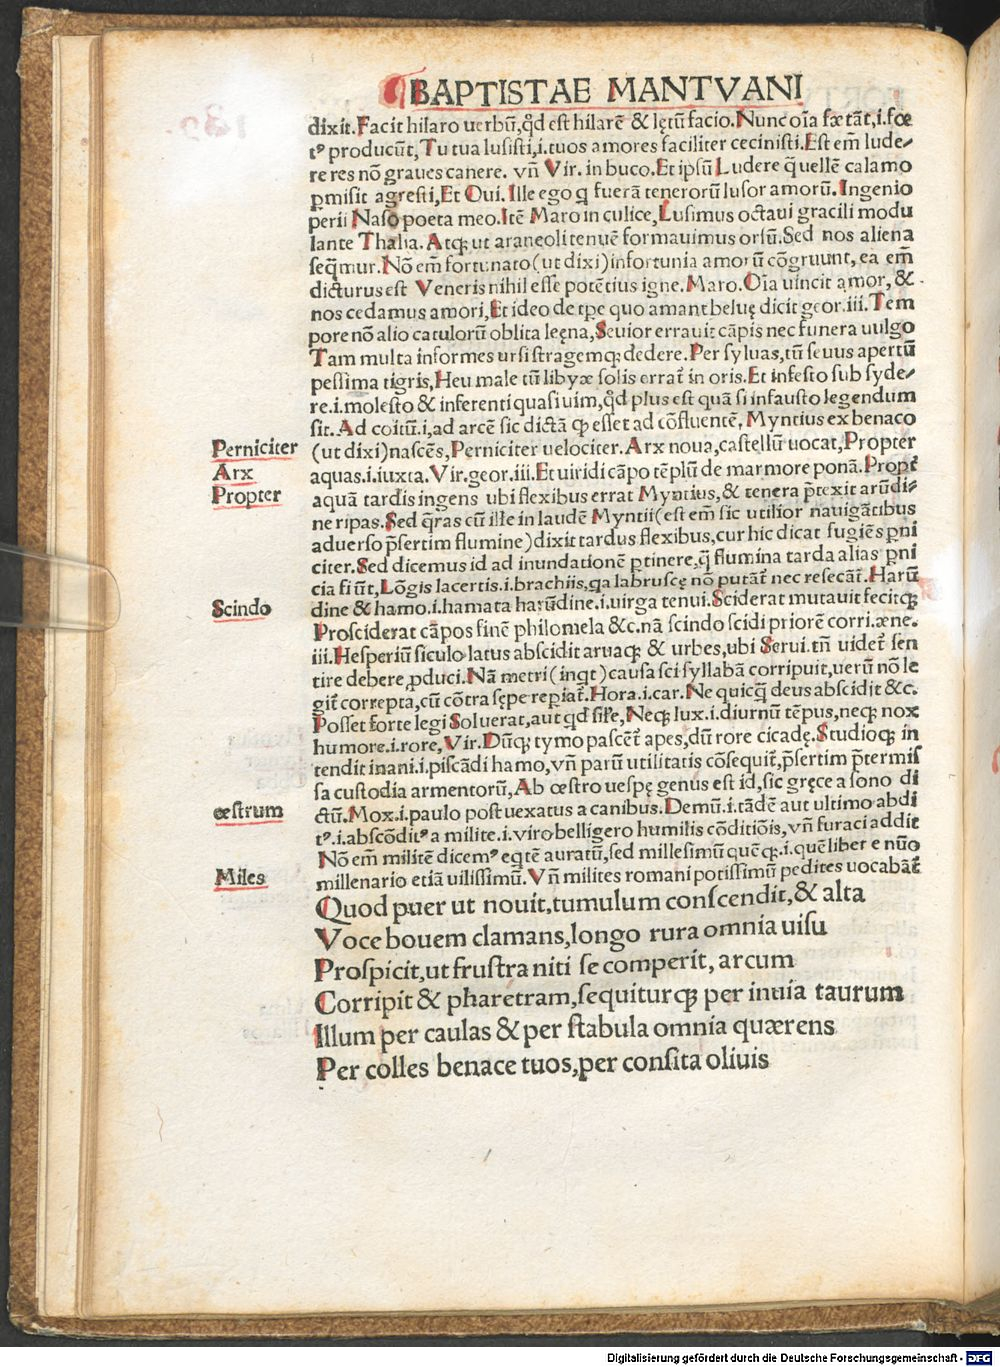 BAPTISTAE MANTVANI
dixit. Facit hilaro uerbũ, qđ est hilarẽ & lętũ facio. Nunc oĩa fœtãt, i. fœ
tꝰ producũt, Tu tua lusisti, i. tuos amores faciliter cecinisti. Est em̃ lude⸗
re res nõ graues canere. vñ Vir. in buco. Et ipsũ Ludere q̃ uellẽ calamo
ꝑmisit agresti, Et Oui. Ille ego q fuerã tenerorũ lusor amorũ. Ingenio
perii Naso poeta meo. Itẽ Maro in culice, Lusimus octaui gracili modu
lante Thalia. Atqꝫ ut araneoli tenuẽ formauimus orsũ. Sed nos aliena
seq̃mur. Nõ em̃ fortunato (ut dixi) infortunia amorũ cõgruunt, ea em̃
dicturus est Veneris nihil esse potẽtius igne. Maro. Oĩa uincit amor, &
nos cedamus amori, Et ideo de tp̃e quo amant beluę dicit geor. iii. Tem
pore nõ alio catulorũ oblita leęna, Seuior errauit cãpis nec funera uulgo
Tam multa informes ursi stragemqꝫ dedere. Per syluas, tũ seuus apertũ
pessima tigris, Heu male tũ libyæ solis errat̃ in oris. Et infesto sub syde⸗
re. i. molesto & inferenti quasi uim, qđ plus est quã si infausto legendum
sit. Ad coitũ. i, ad arcẽ sic dictã ꝙ esset ad cõfluentẽ, Myntius ex benaco
Perniciter (ut dixi) nascẽs, Perniciter velociter. Arx noua, castellũ uocat, Propter
Arx aquas. i. iuxta. Vir. geor. iii. Et uiridi cãpo tẽplũ de marmore ponã. Propt̃
Propter aquã tardis ingens ubi flexibus errat Myntius, & tenera p̃texit arũdi⸗
ne ripas. Sed q̃ras cũ ille in laudẽ Myntii (est em̃ sic utilior nauigãtibus
aduerso p̃sertim flumine) dixit tardus flexibus, cur hic dicat fugiẽs ꝑni
citer. Sed dicemus id ad inundationẽ ꝑtinere, q̃ flumina tarda alias ꝑni
cia fiũt, Lõgis lacertis. i. brachiis, qa labruscę nõ putãt̃ nec resecãt̃. Harũ
Scindo dine & hamo. i. hamata harũdine. i. uirga tenui. Sciderat mutauit fecitqꝫ
Prosciderat cãpos finẽ philomela &c. nã scindo scidi priorẽ corri. æne.
iii. Hesperiũ siculo latus abscidit aruaqꝫ & urbes, ubi Serui. tñ uidet̃ sen
tire debere, ꝓduci. Nã metri (inqt) causa sci syllabã corripuit, uerũ nõ le
git̃ correpta, cũ cõtra sępe repiat̃. Hora. i. car. Ne quicq̃ deus abscidit &c.
Posset forte legi Soluerat, aut qđ sil̃e, Neqꝫ lux. i. diurnũ tẽpus, neqꝫ nox
humore. i. rore, Vir. Dũqꝫ tymo pascẽt̃ apes, dũ rore cicadę. Studioqꝫ in
tendit inani. i. piscãdi hamo, vñ parũ utilitatis cõsequit̃, p̃sertim p̃termis
sa custodia armentorũ, Ab œstro uespę genus est id, sic gręce a sono di
œstrum ctũ. Mox. i. paulo post uexatus a canibus. Demũ. i. tãdẽ aut ultimo abdi
tꝰ. i. abscõditꝰ a milite. i. viro belligero humilis cõditiõis, vñ furaci addit
Nõ em̃ militẽ dicemꝰ eq̃tẽ auratũ, sed millesimũ quẽqꝫ. i. quẽliber e nũo
Miles millenario etiã uilissimũ. Vñ milites romani potissimũ pedites uocabãt̃
Quod puer ut nouit, tumulum conscendit, & alta
Voce bouem clamans, longo rura omnia uisu
Prospicit, ut frustra niti se comperit, arcum
Corripit & pharetram, sequiturqꝫ per inuia taurum
Illum per caulas & per stabula omnia quærens
Per colles benace tuos, per consita oliuis
Digitalisierung gefördert durch die Deutsche Forschungsgemeinschaft - DFG